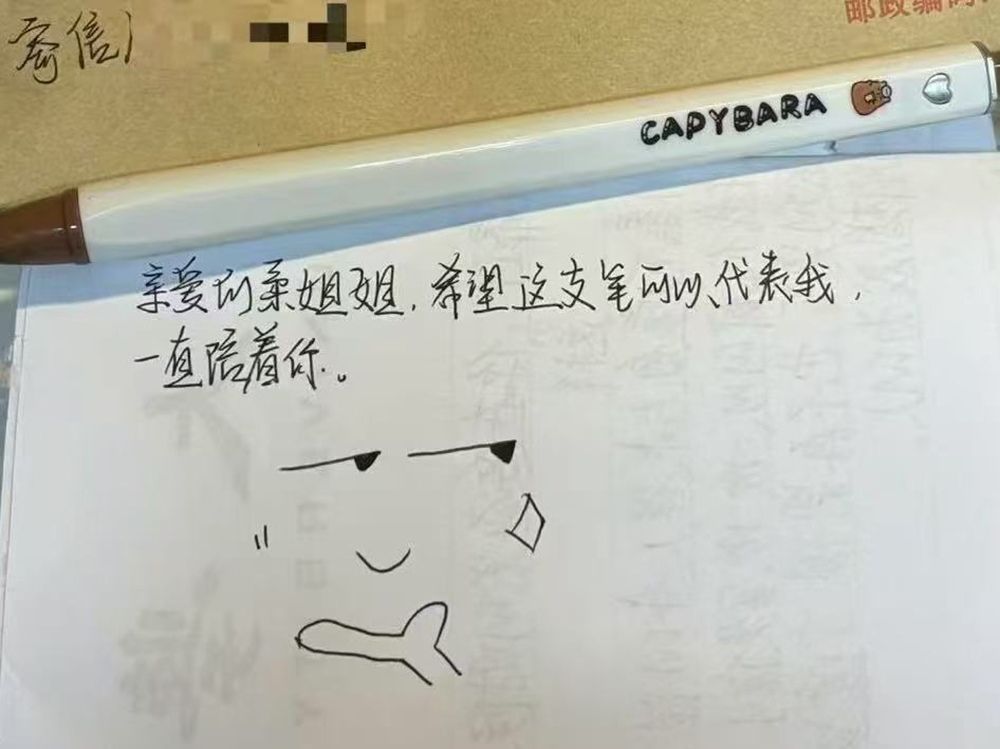 寄信人
邮政编码
CAPYBARA
亲爱的柔姐姐，希望这支笔可以代表我，
一直陪着你。